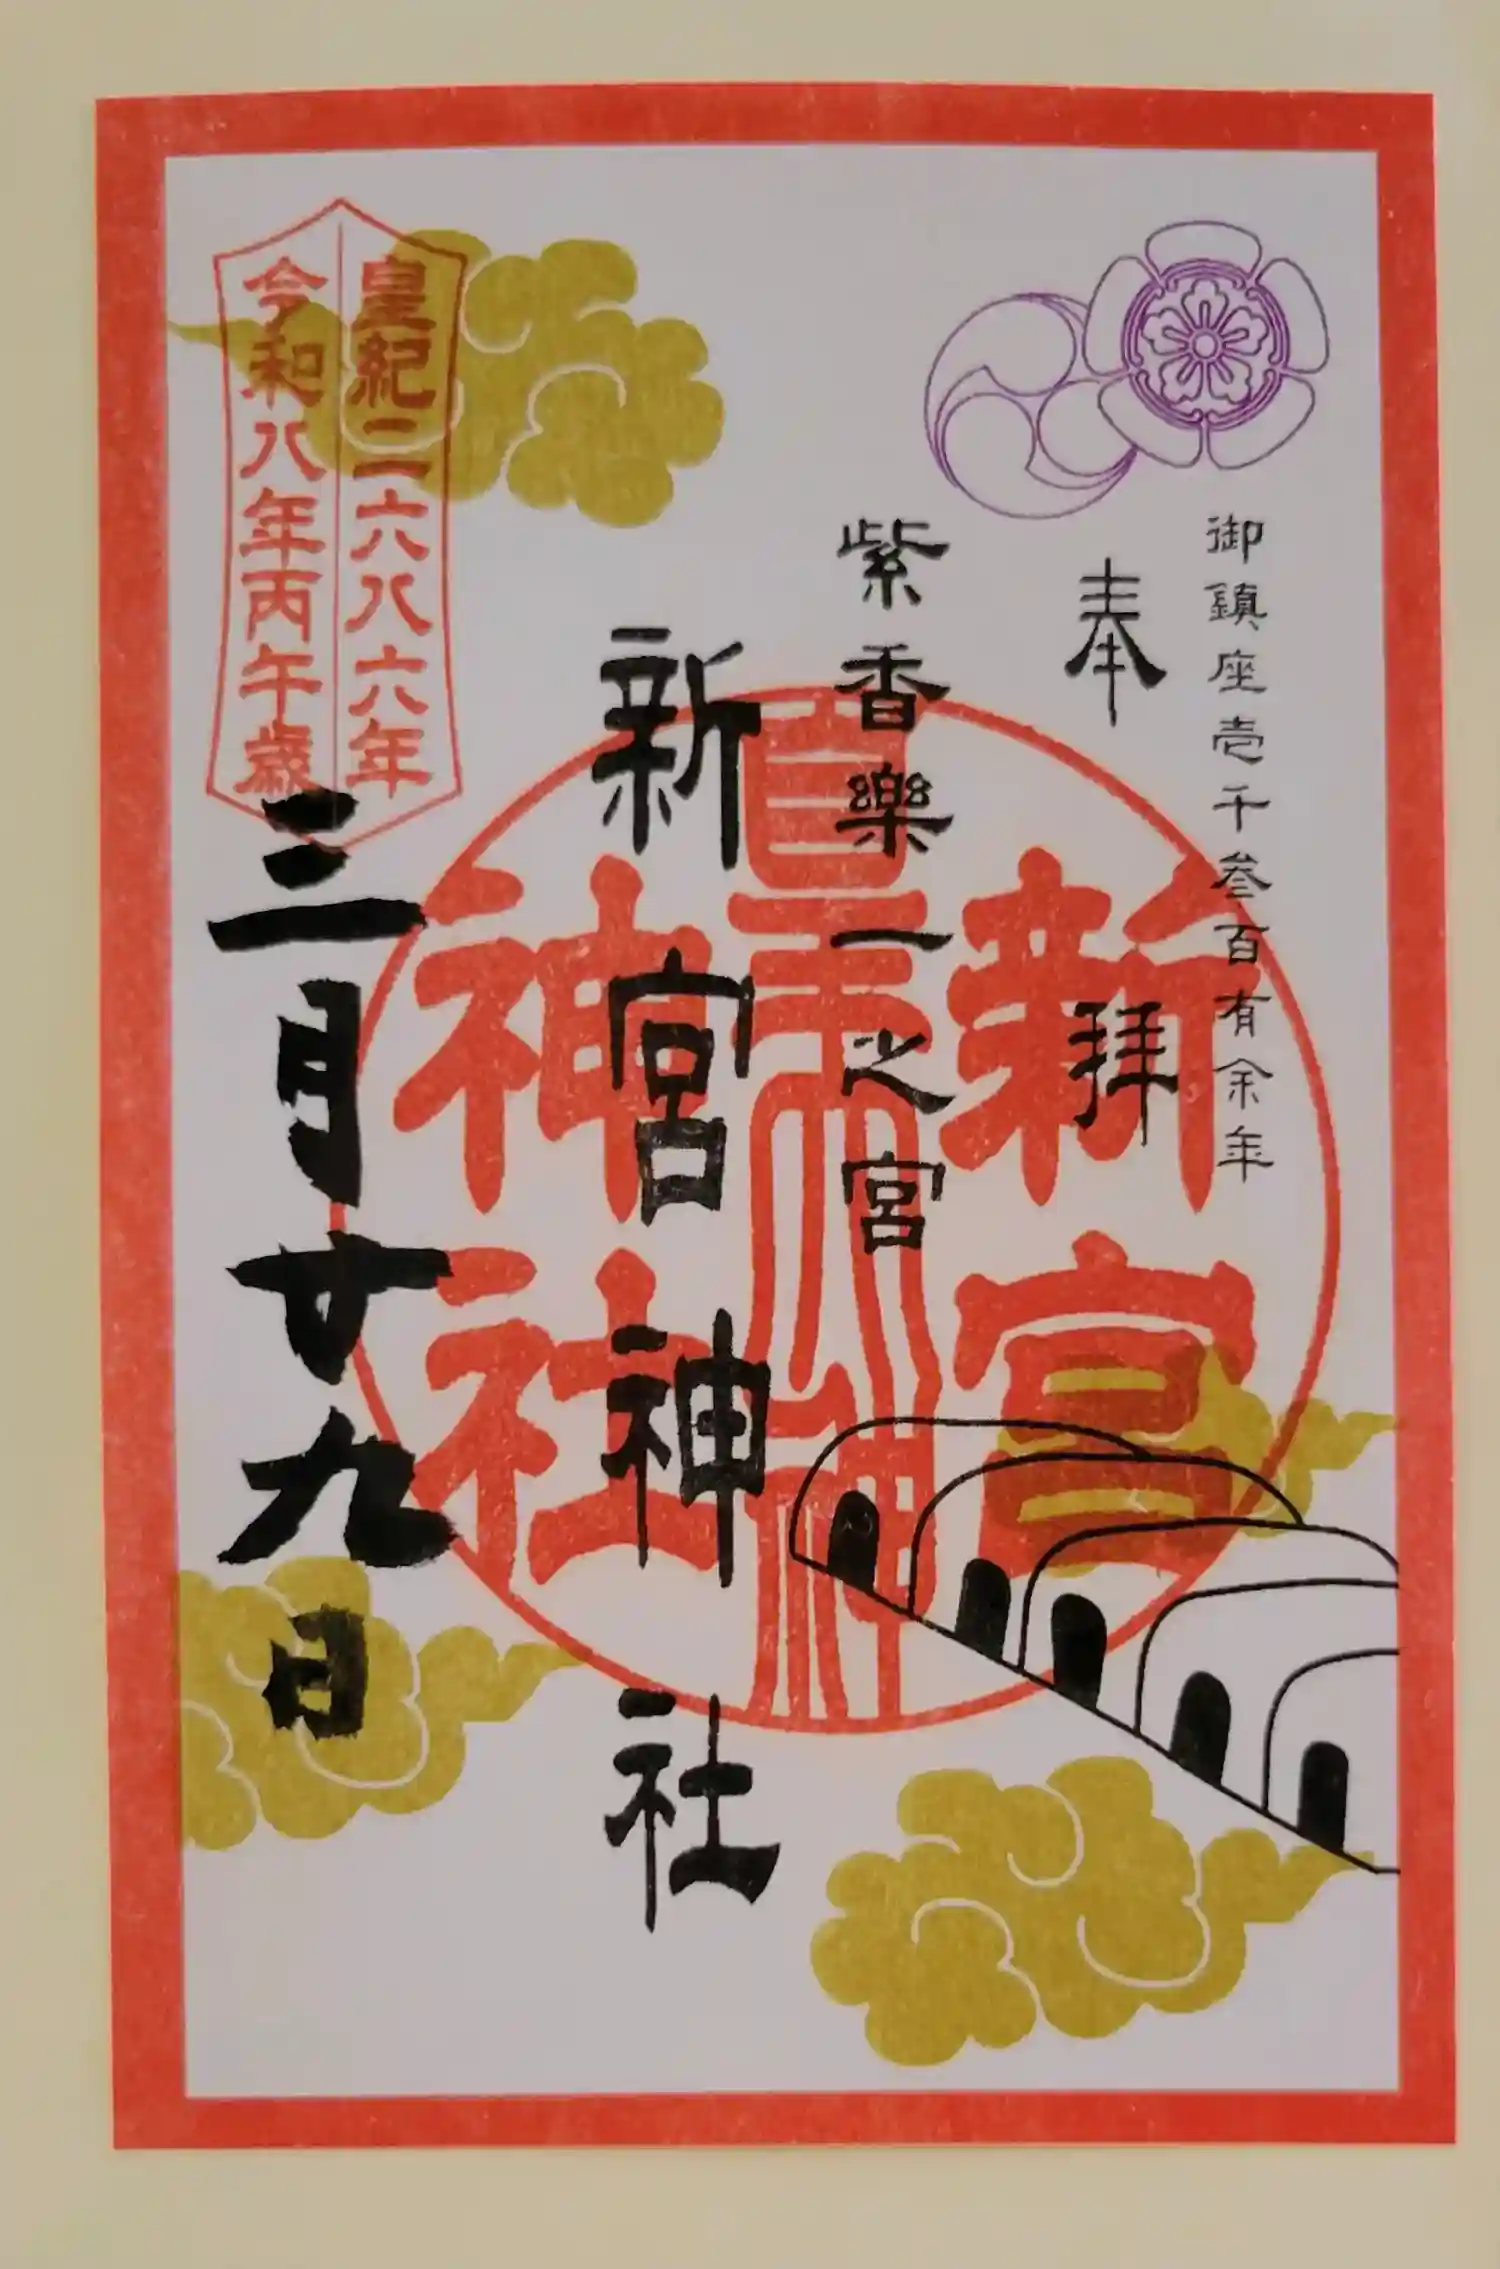 御鎮座壱千参百有余年
奉拝
紫香樂一之宮
新宮神社
新宮
神社
皇紀二六八六年
令和八年丙午歳
三月廿九日